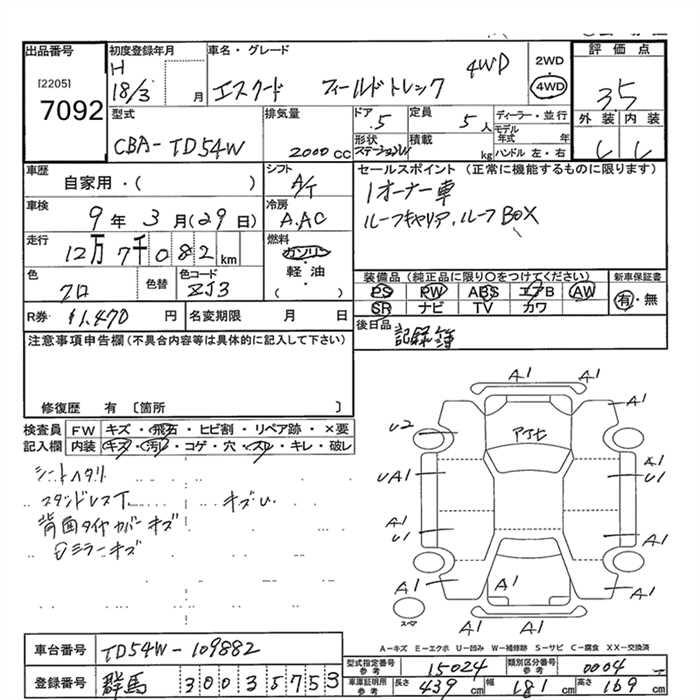 出品番号 初度登録年月 車名・グレード 2WD 評価点
[2205] H 4WD
7092 18/3 月 エスクード フィールドトレック 4WD 3.5
型式 排気量 ドア 定員 ディーラー・並行 外装 内装
CBA-TD54W 2000 CC .5 5人 モデル年式 年
形状 ステーションW 積載 kg ハンドル 左・右
車歴 シフト セールスポイント (正常に機能するものに限ります)
自家用・( ) A/T 1オーナー車
車検 冷房 ルーフキャリア、ルーフBOX
9年 3月(29日) A.AC
走行 燃料
12万7千082km ガソリン
色 色替 色コード 軽油 装備品 (純正品に限り○をつけてください) 新車保証書
クロ ZJ3 ( ) PS PW ABS エアB AW 有・無
SR ナビ TV カワ
R券 ¥1,470 円 名変期限 月 日 後日品
記録簿
注意事項申告欄 (不具合内容等は具体的に記入して下さい)
修復歴 有 〔箇所 〕
検査員 FW キズ・飛石・ヒビ割・リペア跡・×要
記入欄 内装 キズ・汚レ・コゲ・穴・スレ・キレ・破レ
シートヘタリ
スタンドレス下 キズU
背面タイヤカバーキズ
ミラーキズ
A1 A1
U2
UA1 A1
U1
A1
U1 A1
A1 A1 A1
A1 A1
A-キズ E-エクボ U-凹み W-補修跡 S-サビ C-腐食 XX-交換済
車台番号 TD54W-109882
型式指定番号 参考 15024 類別区分番号 参考 0004
登録番号 群馬 300 35753
車庫証明用 参考 長さ 439 cm 幅 181 cm 高さ 169 cm